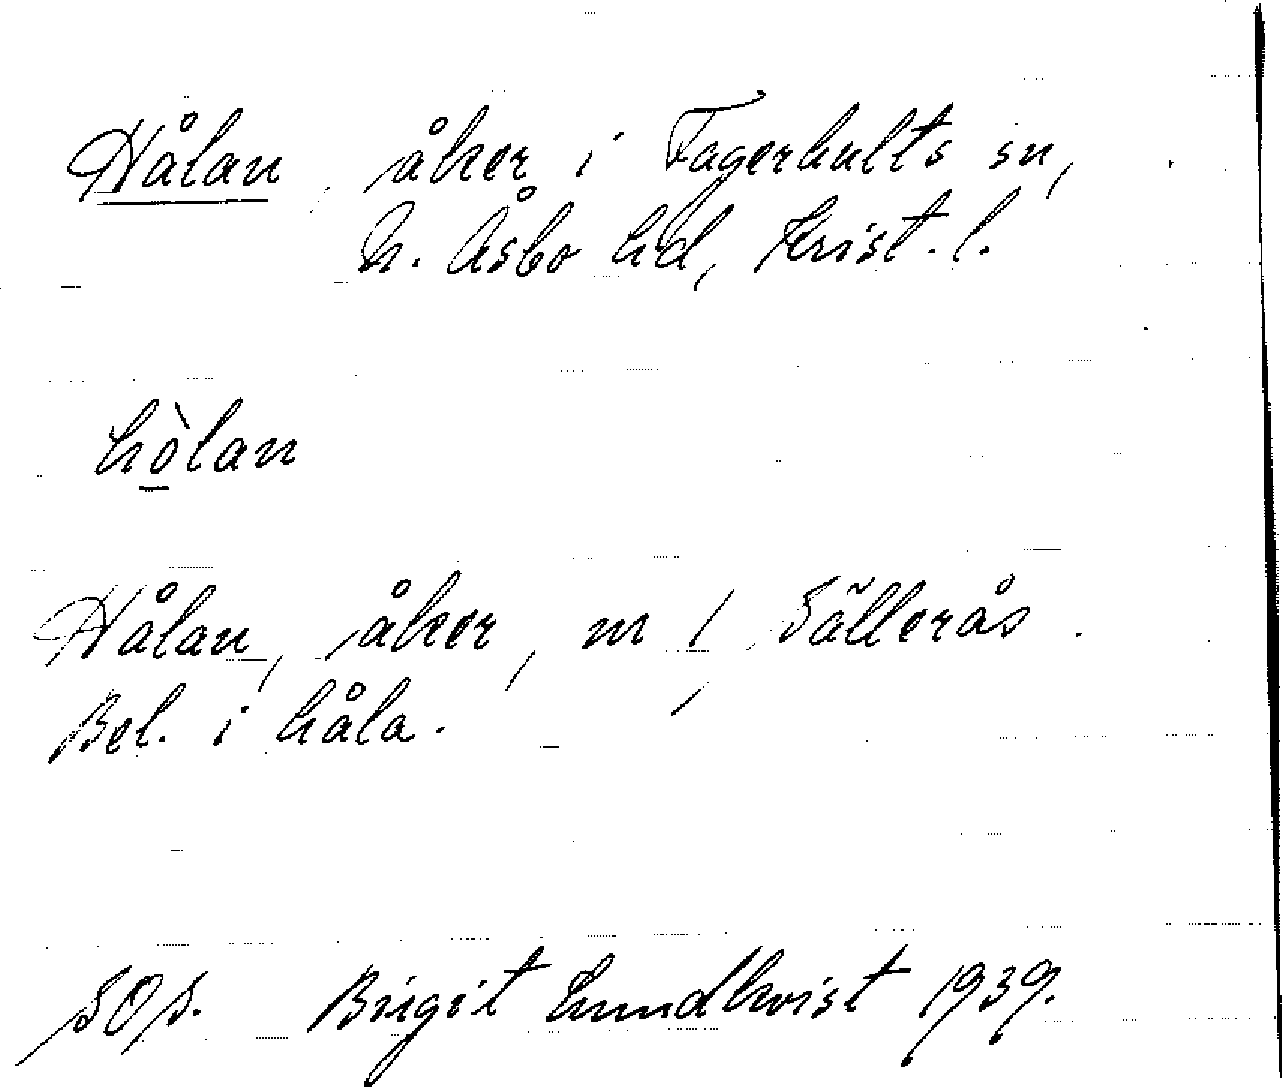 Hålan, åker i Fagerhults sn,
N. Åsbo hd, Krist. l.
hò̱lan
Hålan, åker, m 1, Sällerås.
Bel. i håla.
Birgit Lundkvist 1939.